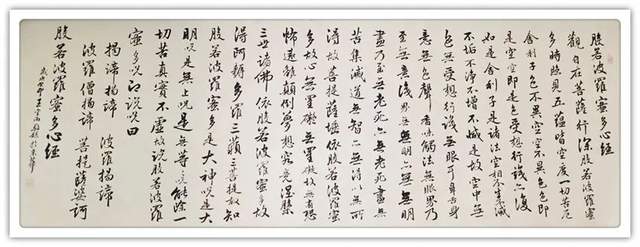 般若波羅蜜多心經
觀自在菩薩行深般若波羅蜜
多時照見五蘊皆空度一切苦厄
舍利子色不異空空不異色色即
是空空即是色受想行識亦復
如是舍利子是諸法空相不生不滅
不垢不淨不增不減是故空中無
色無受想行識無眼耳鼻舌身
意無色聲香味觸法無眼界乃
至無意識界無無明亦無無明
盡乃至無老死亦無老死盡無
苦集滅道無智亦無得以無所
得故菩提薩埵依般若波羅蜜
多故心無罣礙無罣礙故無有恐
怖遠離顛倒夢想究竟涅槃
三世諸佛依般若波羅蜜多故
得阿耨多羅三藐三菩提故知
般若波羅蜜多是大神咒是大
明咒是無上咒是無等等咒能除一
切苦真實不虛故說般若波羅
蜜多咒即說咒曰
揭諦揭諦 波羅揭諦
波羅僧揭諦 菩提薩婆訶
般若波羅蜜多心經